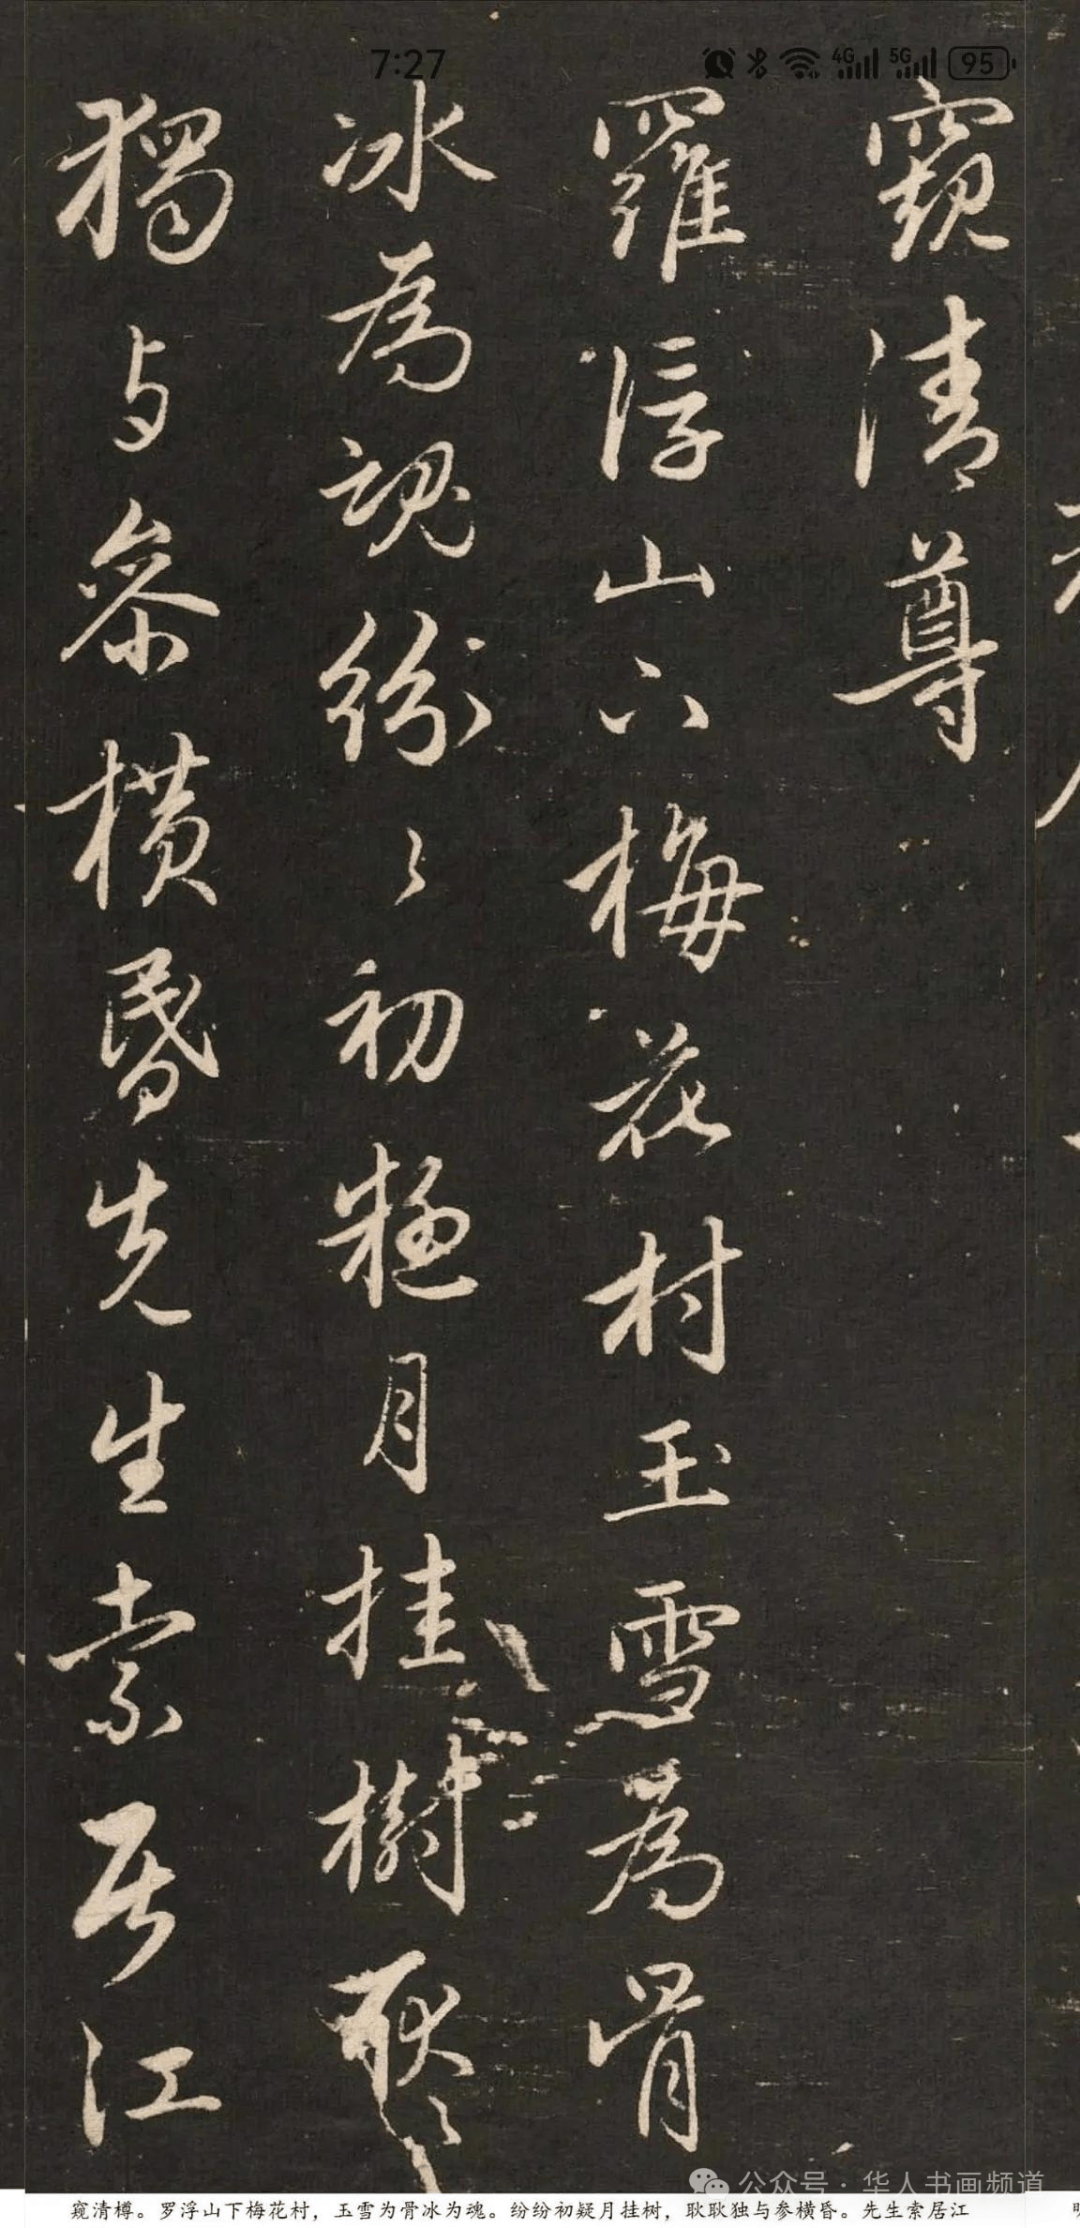 7:27 4G 5G 95
窺清尊
羅浮山下梅花村玉雪為骨
冰為魂紛〻初疑月挂樹耿〻
獨与參橫昏先生索居江
公众号 · 华人书画频道
窥清樽。罗浮山下梅花村，玉雪为骨冰为魂。纷纷初疑月挂树，耿耿独与参横昏。先生索居江